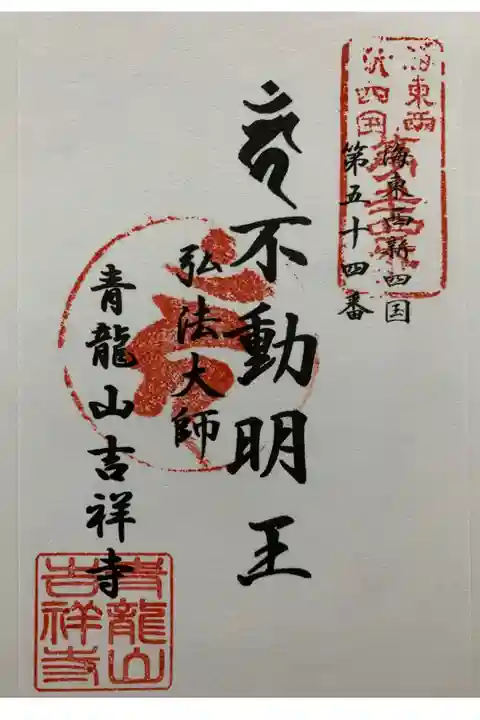 海東西新四国
第五十四番
不動明王
弘法大師
青龍山吉祥寺
青龍山
吉祥寺